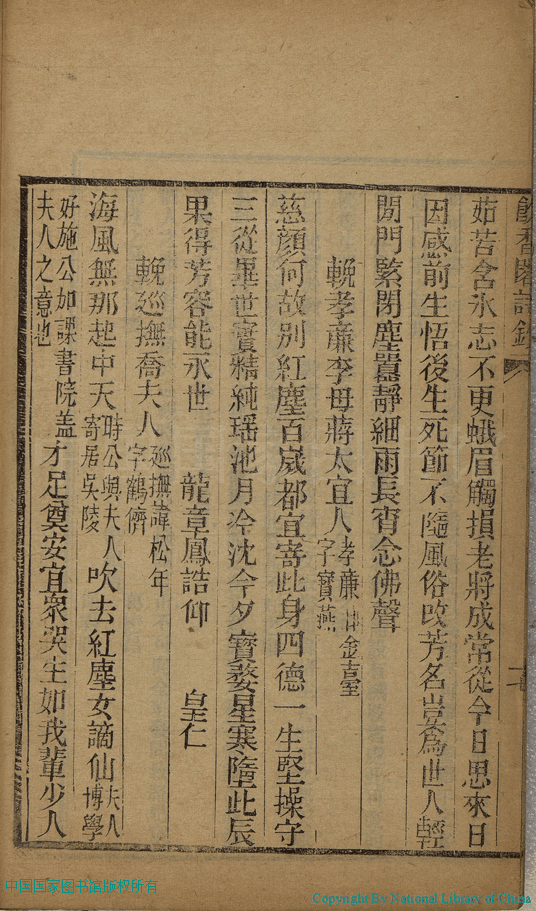 飲香閣詩鈔
茹苦含氷志不更蛾眉觸損老將成常從今日思來日
因感前生悟後生死節不隨風俗改芳名豈爲世人輕
閨門緊閉塵囂靜細雨長宵念佛聲
輓孝廉李母蔣太宜人孝廉 金臺字寶燕
慈顏何故別紅塵百歲都宜寄此身四德一生堅操守
三從畢世實精純瑤池月冷沈今夕寶婺星寒墮此辰
果得芳容能永世 龍章鳳誥仰 皇仁
輓廵撫喬夫人廵撫諱松年字鶴儕
海風無那起中天時公與夫人寄居吳陵吹去紅塵女謫仙夫人博學
好施公如課書院盖夫人之意也才足奠安宜衆哭生如我輩少人
中国国家图书馆版权所有
Copyright By National Library of China